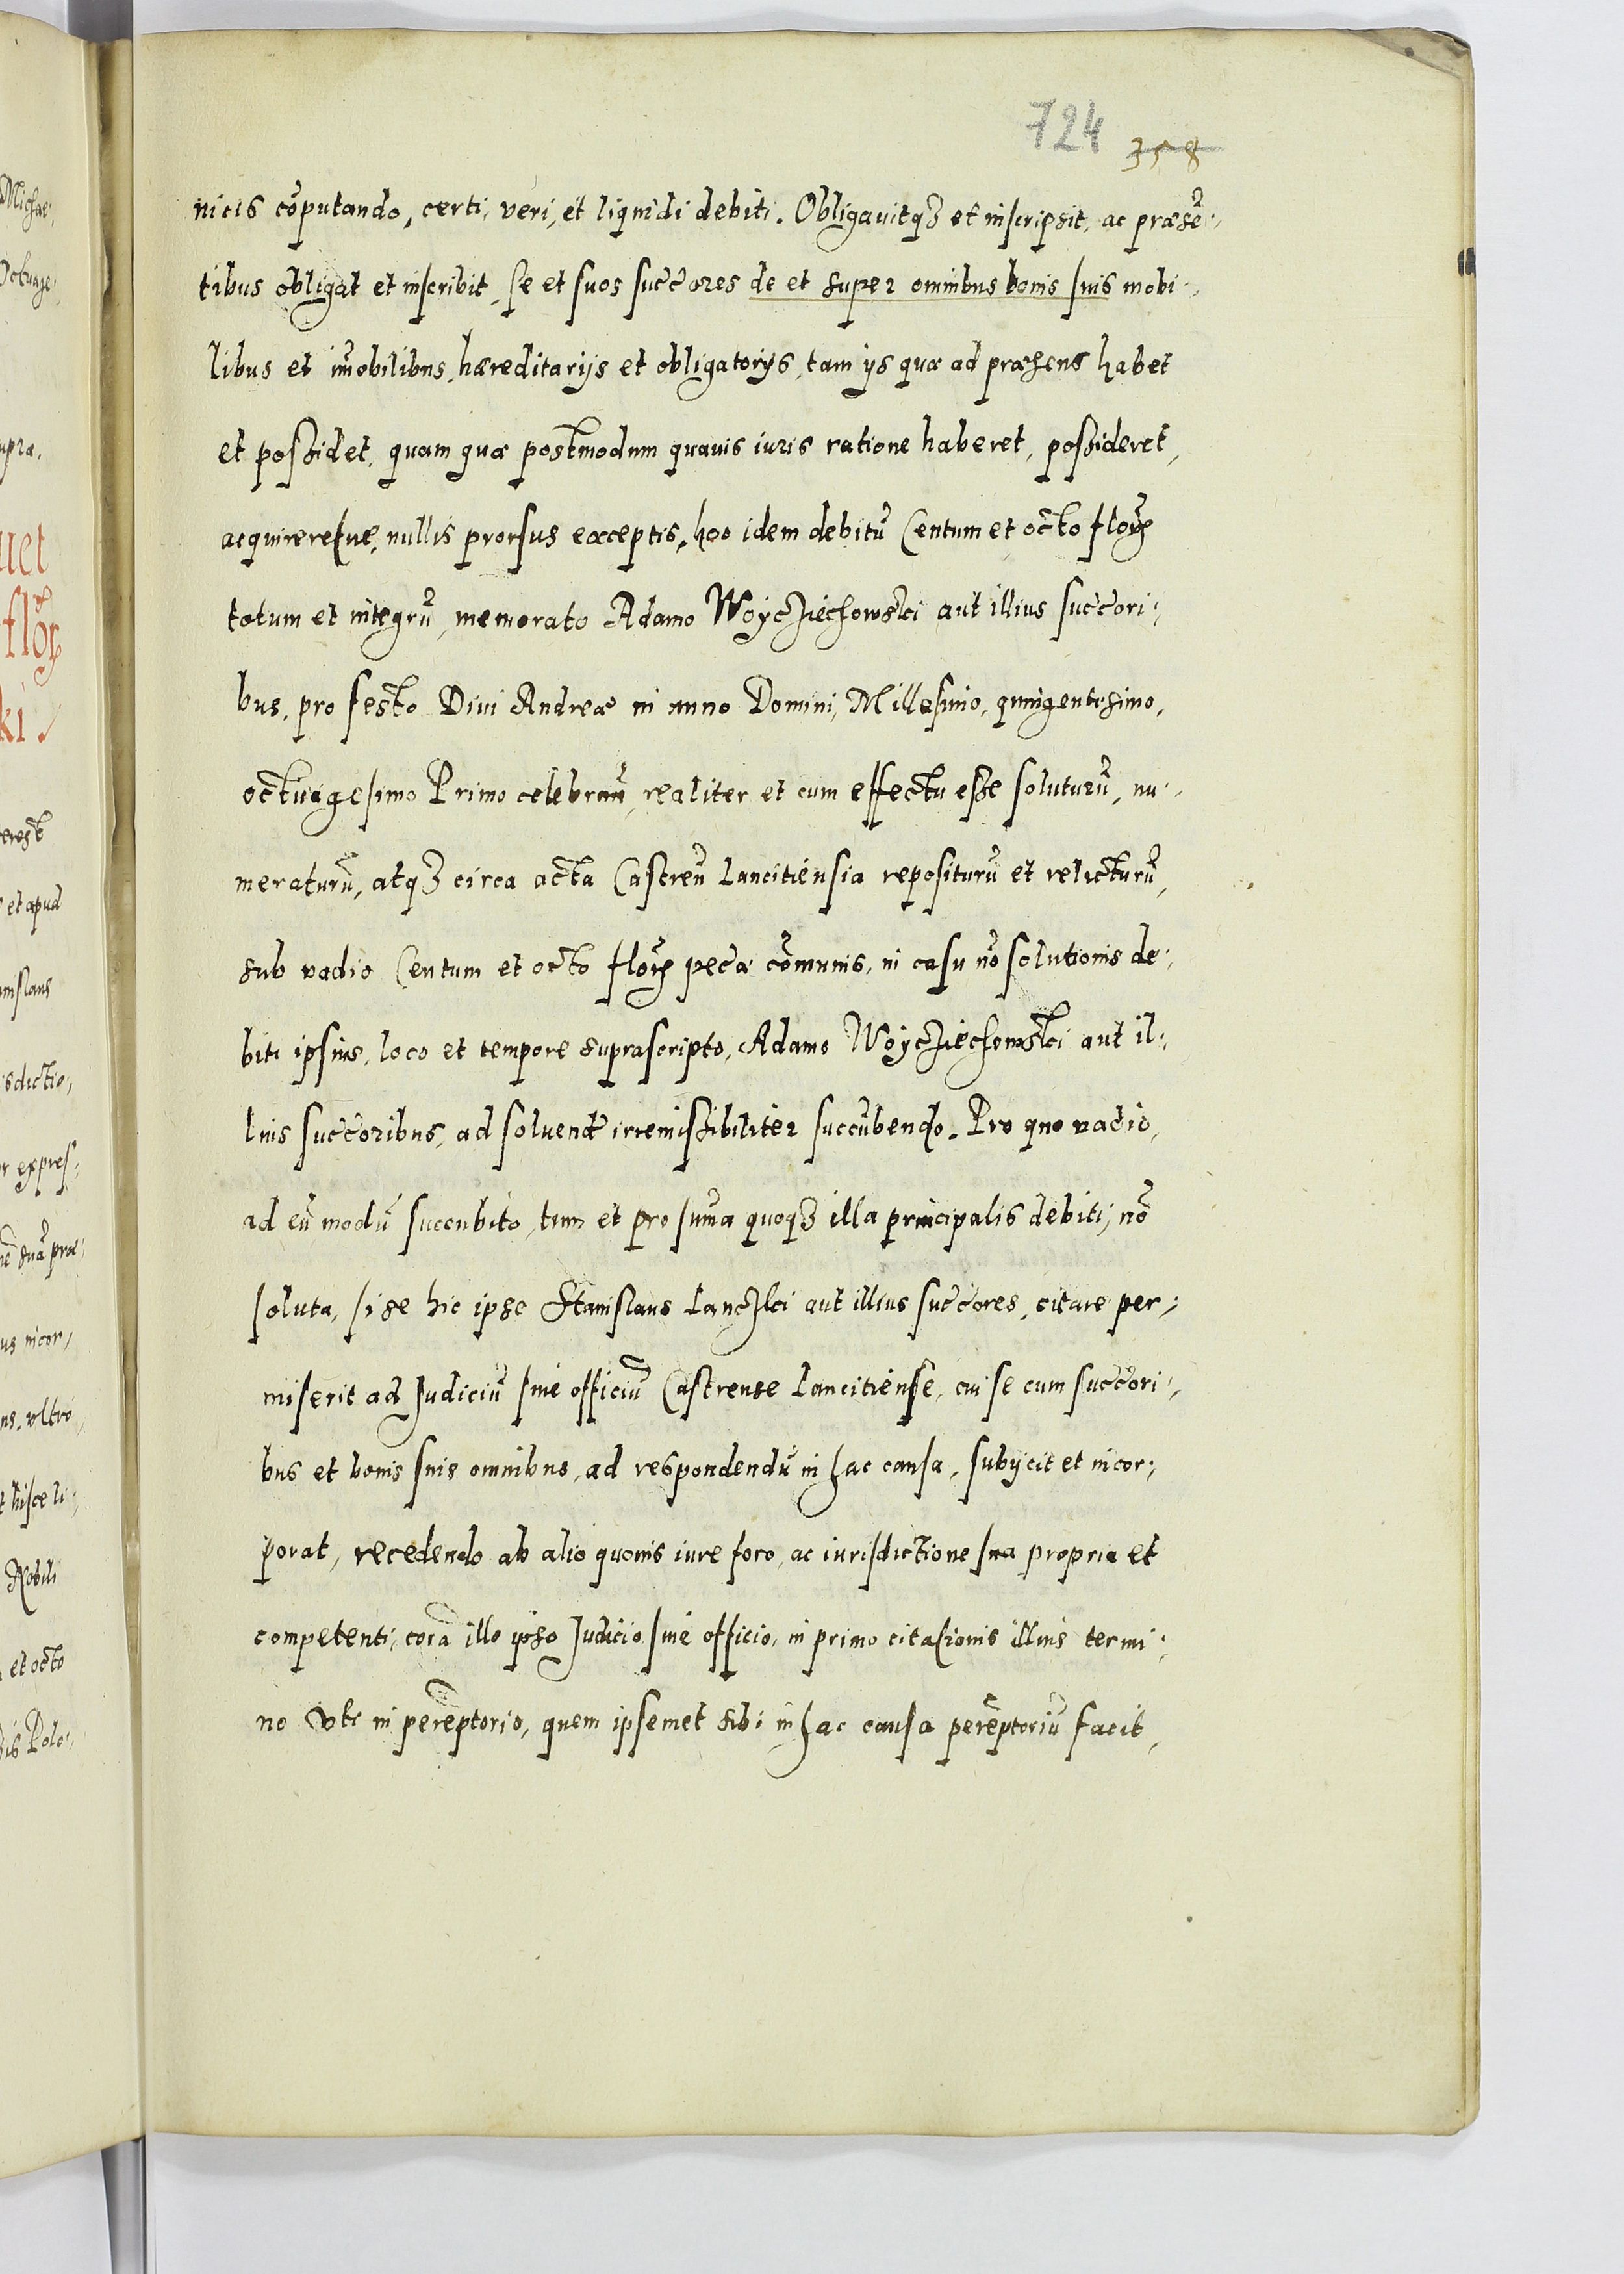 724 358
nicis cõputando, certi, veri, et liquidi debiti. Obligauitqȝ et inscripsit, ac præsẽ-
tibus obligat et inscribit, se et suos succ̃ores de et super omnibus bonis suis mobi-
libus et im̃obilibus, hæreditarijs et obligatorijs, tam ijs quæ ad præsens habet
et possidet, quam quæ postmodum quauis iuris ratione haberet, possideret,
acquireretue, nullis prorsus exceptis, hoc idem debitũ Centum et octo floꝝ
totum et integrũ, memorato Adamo Woyczięchowski aut illius succ̃ori-
bus, pro festo Diui Andreæ in anno Domini, Millesimo, quingentesimo,
octuagesimo Primo celebran̄, realiter et cum effectu esse soluturũ, nu-
meraturũ, atqȝ circa acta Castreñ Lancitiensia repositurũ et relicturũ,
sub vadio Centum et octo floꝝ pec̃æ cõmunis, in casu nõ solutionis de-
biti ipsius, loco et tempore suprascripto, Adamo Woyczięchowski aut il-
lius succ̃oribus, ad soluend̃ irremissibiliter succũbendo. Pro quo vadio,
ad eũ modũ succubito, tum et pro sum̃a quoqȝ illa principalis debiti, nõ
soluta, si se hic ipse Stanislaus Lanczki aut illius succ̃ores, citare per-
miserit ad Judiciũ siue officiũ Castrense Lancitiense, cui se cum succ̃ori-
bus et bonis suis omnibus, ad respondendũ in hac causa, subijcit et incor-
porat, recedendo ab alio quouis iure foro, ac iurisdictione sua propria et
competenti, corã illo ipso Judicio siue officio, in primo citationis illius termi-
no vti in perẽptorio, quem ipsemet sibi in hac causa perẽptoriũ facit,